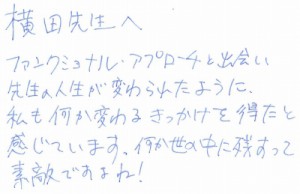 横田先生へ
ファンクショナル・アプローチと出会い
先生の人生が変わられたように、
私も何か変わるきっかけを得たと
感じています。何か世の中に残すって
素敵ですよね！